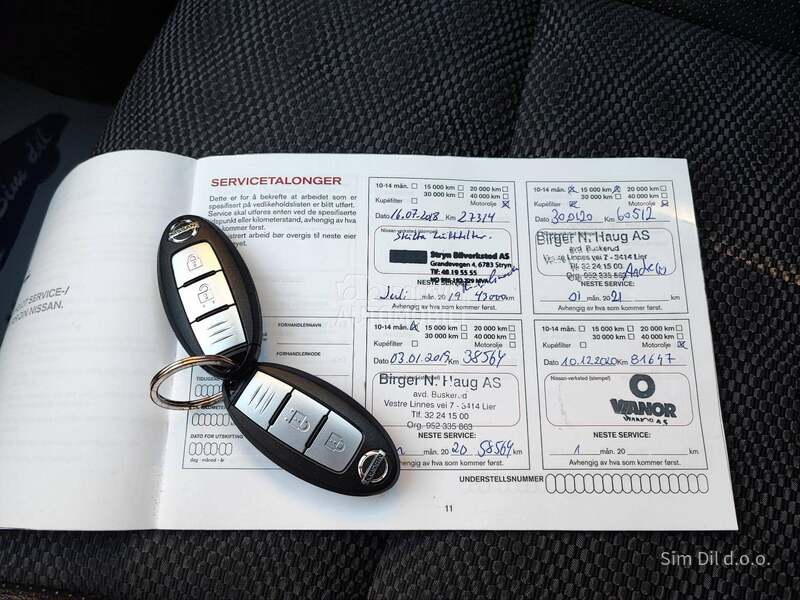 SERVICETALONGER
Dette er for å bekrefte at arbeidet som er
spesifisert på vedlikeholdslisten er blitt utført.
Service skal utføres enten ved de spesifiserte
tidspunkt eller kilometerstand, avhengig av hva
som kommer først.
arbeid bør overgis til neste eier
FORHANDLERNAVN
FORHANDLERKODE
DATO FOR UTSKIFTING
dag - måned - år
10-14 mån. 15 000 km 20 000 km
30 000 km 40 000 km
Kupéfilter Motorolje
Dato 16.07.2018 Km 27314
Nissan-verksted (stempel)
Stryn Bilverksted AS
Grandevegen 4, 6783 Stryn
Tlf: 48 19 55 55
NESTE SERVICE:
Juli mån. 20 19 43000 km
Avhengig av hva som kommer først.
10-14 mån. 15 000 km 20 000 km
30 000 km 40 000 km
Kupéfilter Motorolje
Dato 30.0120 Km 60512
Birger N. Haug AS
avd. Buskerud
Vestre Linnes vei 7 - 3414 Lier
Tlf. 32 24 15 00
NESTE SERVICE:
01 mån. 20 21 km
Avhengig av hva som kommer først.
10-14 mån. 15 000 km 20 000 km
30 000 km 40 000 km
Kupéfilter Motorolje
Dato 03.01.2019 Km 38564
Birger N. Haug AS
avd. Buskerud
Vestre Linnes vei 7 - 3414 Lier
Tlf. 32 24 15 00
Org. 952 335 863
NESTE SERVICE:
mån. 20 20 58564 km
Avhengig av hva som kommer først.
10-14 mån. 15 000 km 20 000 km
30 000 km 40 000 km
Kupéfilter Motorolje
Dato 10.12.2020 Km 81647
Nissan-verksted (stempel)
VIANOR
NESTE SERVICE:
1 mån. 20 km
Avhengig av hva som kommer først.
UNDERSTELLSNUMMER
11
Sim Dil d.o.o.